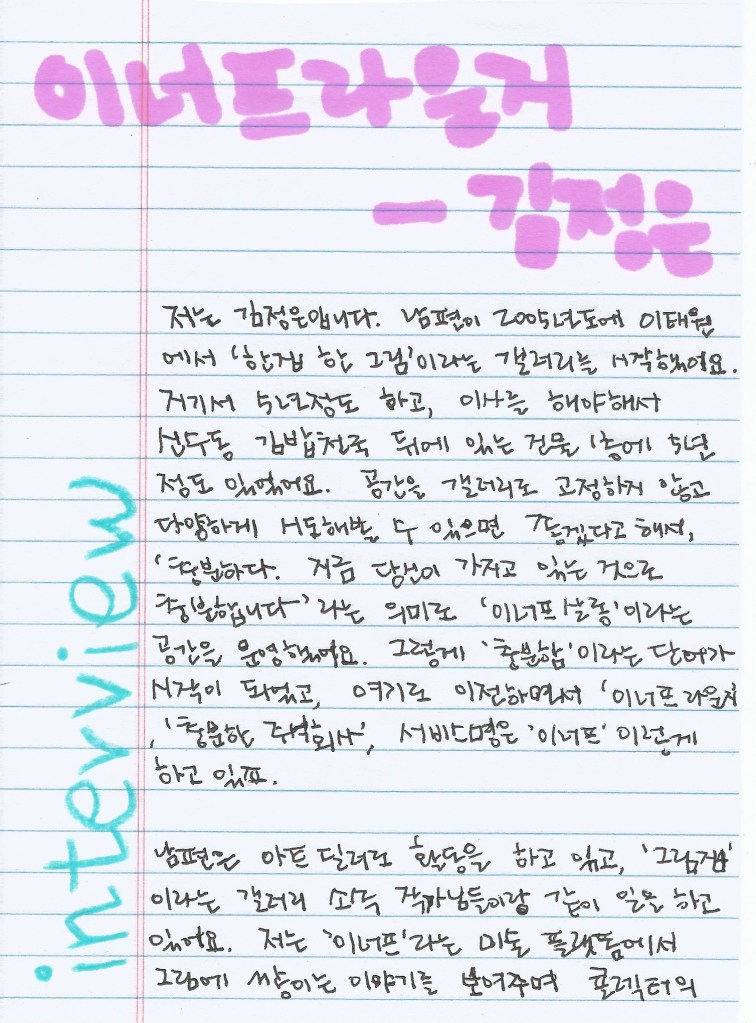 이너프라운지
- 김정은
interview
저는 김정은입니다. 남편이 2005년도에 이태원
에서 '한집 한 그림'이라는 갤러리를 시작했어요.
거기서 5년정도 하고, 이사를 해야해서
김밥천국 뒤에 있는 건물 1층에 5년
정도 있었어요. 공간을 갤러리로 고정하지 않고
다양하게 시도해볼 수 있으면 좋겠다고 해서,
'충분하다. 지금 당신이 가지고 있는 것으로
충분합니다'라는 의미로 '이너프살롱'이라는
공간을 운영했어요. 그렇게 '충분함'이라는 단어가
시작이 되었고, 여기로 이전하면서 '이너프라운지'
, '충분한 주식회사', 서비스명은 '이너프' 이렇게
하고 있죠.
남편은 아트 딜러로 활동을 하고 있고, '그림집'
이라는 갤러리 소속 작가님들이랑 같이 일을 하고
있어요. 저는 '이너프'라는 미술 플랫폼에서
그림에 쌓이는 이야기를 보여주며 콜렉터의